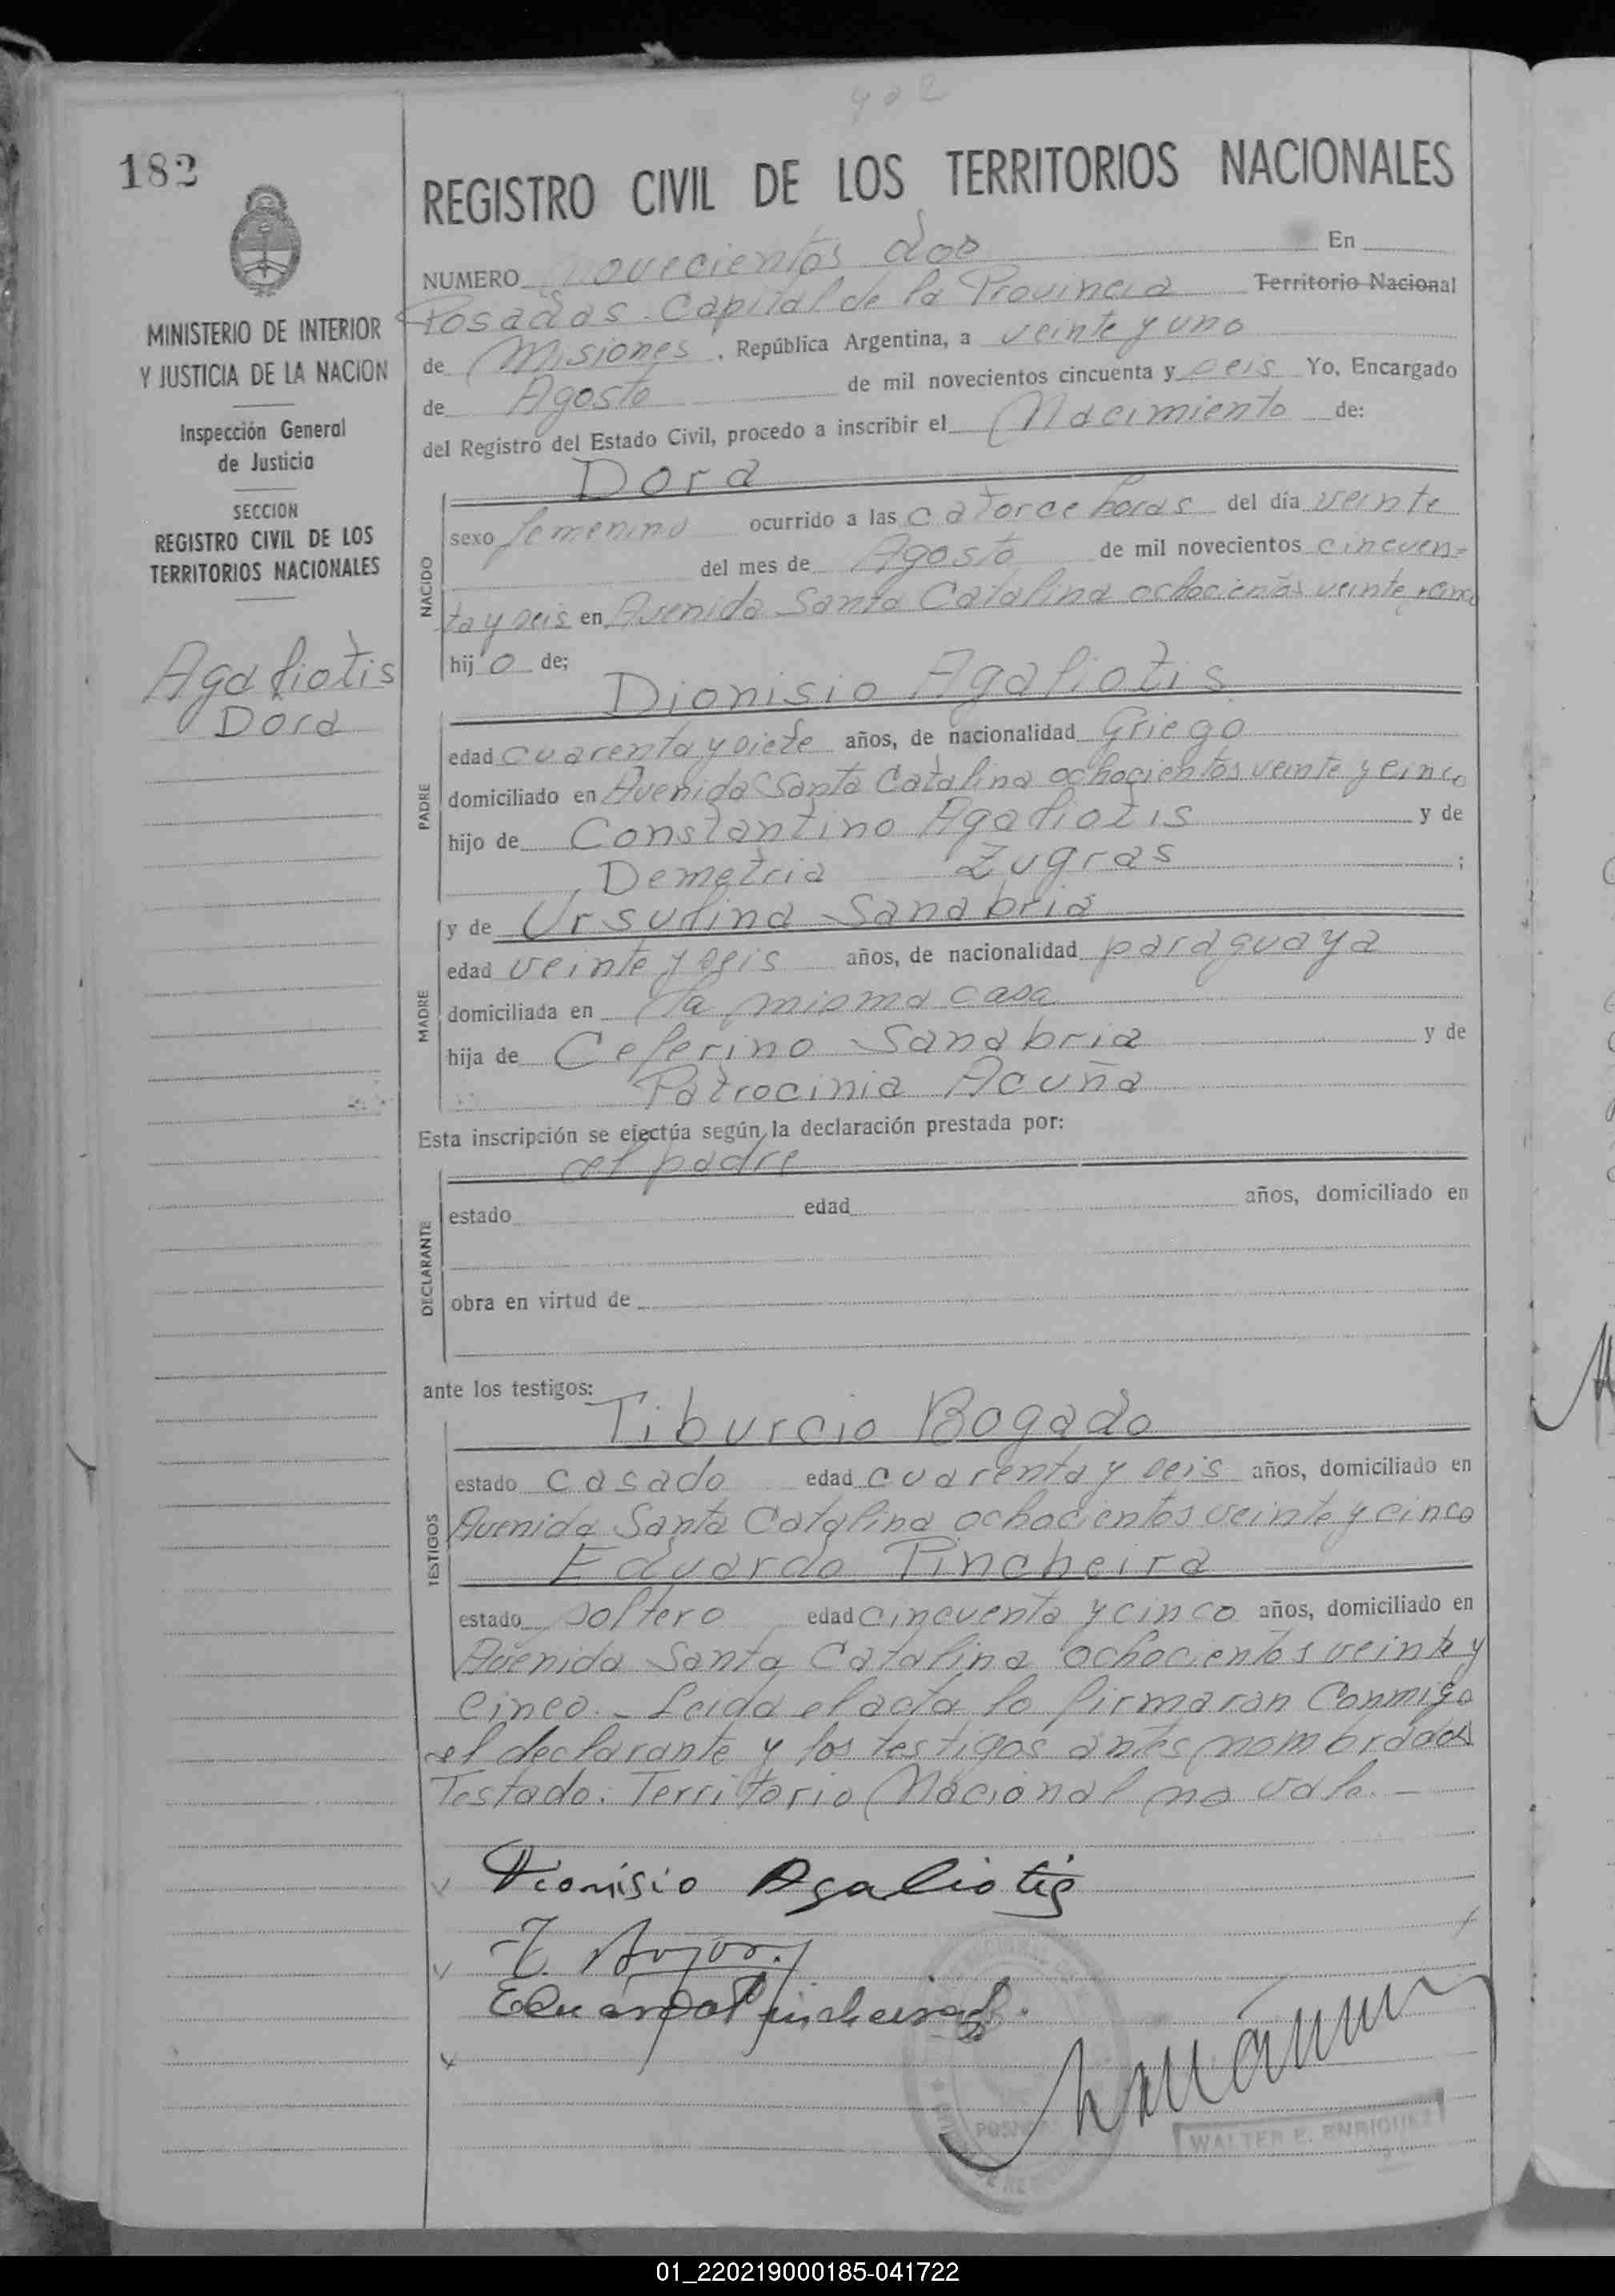 902
182
REGISTRO CIVIL DE LOS TERRITORIOS NACIONALES
NUMERO novecientos dos En
Posadas. Capital de la Provincia Territorio Nacional
de Misiones, República Argentina, a veinte y uno
de Agosto de mil novecientos cincuenta y seis Yo, Encargado
del Registro del Estado Civil, procedo a inscribir el Nacimiento de:
Dora
MINISTERIO DE INTERIOR
Y JUSTICIA DE LA NACION
Inspección General
de Justicia
SECCION
REGISTRO CIVIL DE LOS
TERRITORIOS NACIONALES
Agaliotis
Dora
NACIDO
sexo femenino ocurrido a las catorce horas del día veinte
del mes de Agosto de mil novecientos cincuen=
ta y seis en Avenida Santa Catalina ochocientos veinte y cinco
hijo de;
Dionisio Agaliotis
PADRE
edad cuarenta y siete años, de nacionalidad Griego
domiciliado en Avenida Santa Catalina ochocientos veinte y cinco
hijo de Constantino Agaliotis y de
Demetria Zugras ;
MADRE
y de Ursulina Sanabria
edad veinte y seis años, de nacionalidad paraguaya
domiciliada en la misma casa
hija de Ceferino Sanabria y de
Patrocinia Acuña
Esta inscripción se efectúa según la declaración prestada por:
el padre
DECLARANTE
estado edad años, domiciliado en
obra en virtud de
ante los testigos:
Tiburcio Bogado
TESTIGOS
estado casado edad cuarenta y seis años, domiciliado en
Avenida Santa Catalina ochocientos veinte y cinco
Eduardo Pincheira
estado soltero edad cincuenta y cinco años, domiciliado en
Avenida Santa Catalina ochocientos veinte y
cinco. - Leida el acta lo firmaran conmigo
el declarante y los testigos antes nombrados
Testado: Territorio Nacional no vale. -
Dionisio Agaliotis
Eduardo Pincheira
POSADAS
WALTER E. ENRIQUEZ
01_220219000185-041722